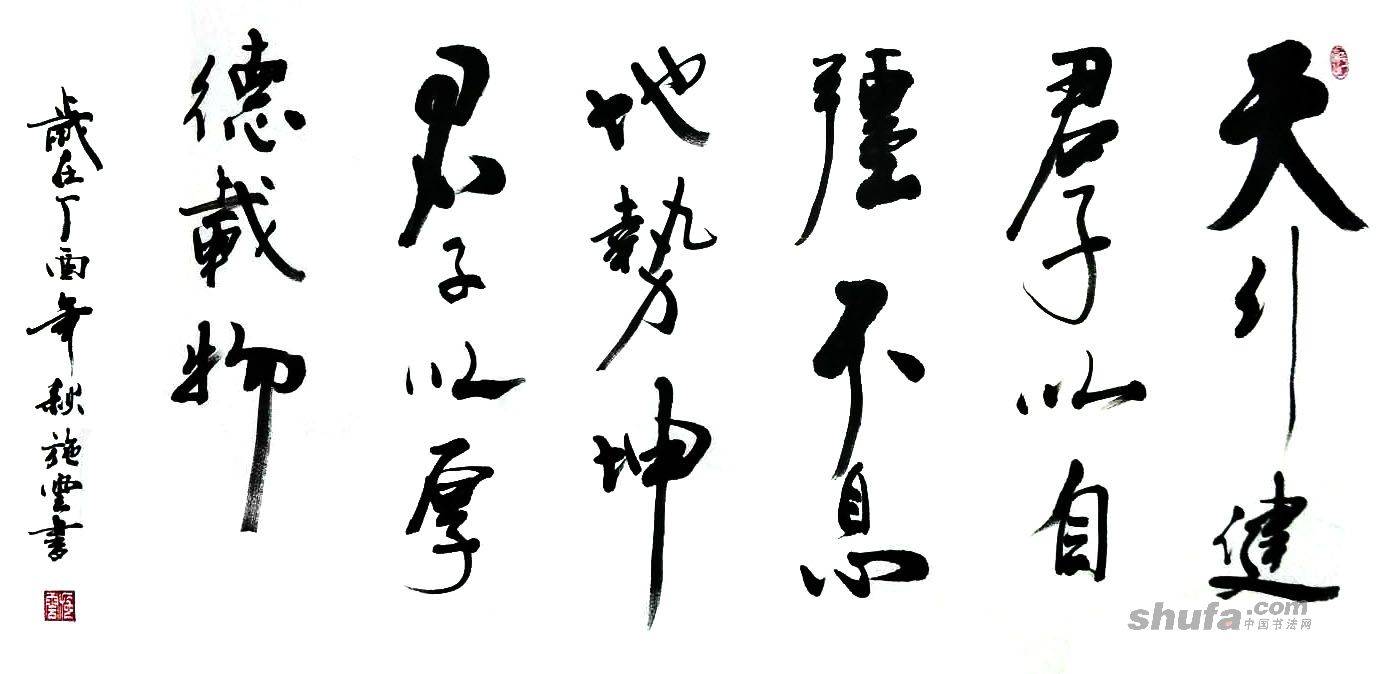 天行健
君子以自
彊不息
地勢坤
君子以厚
德載物
歲在丁酉年秋施雲書
shufa.com
中国书法网